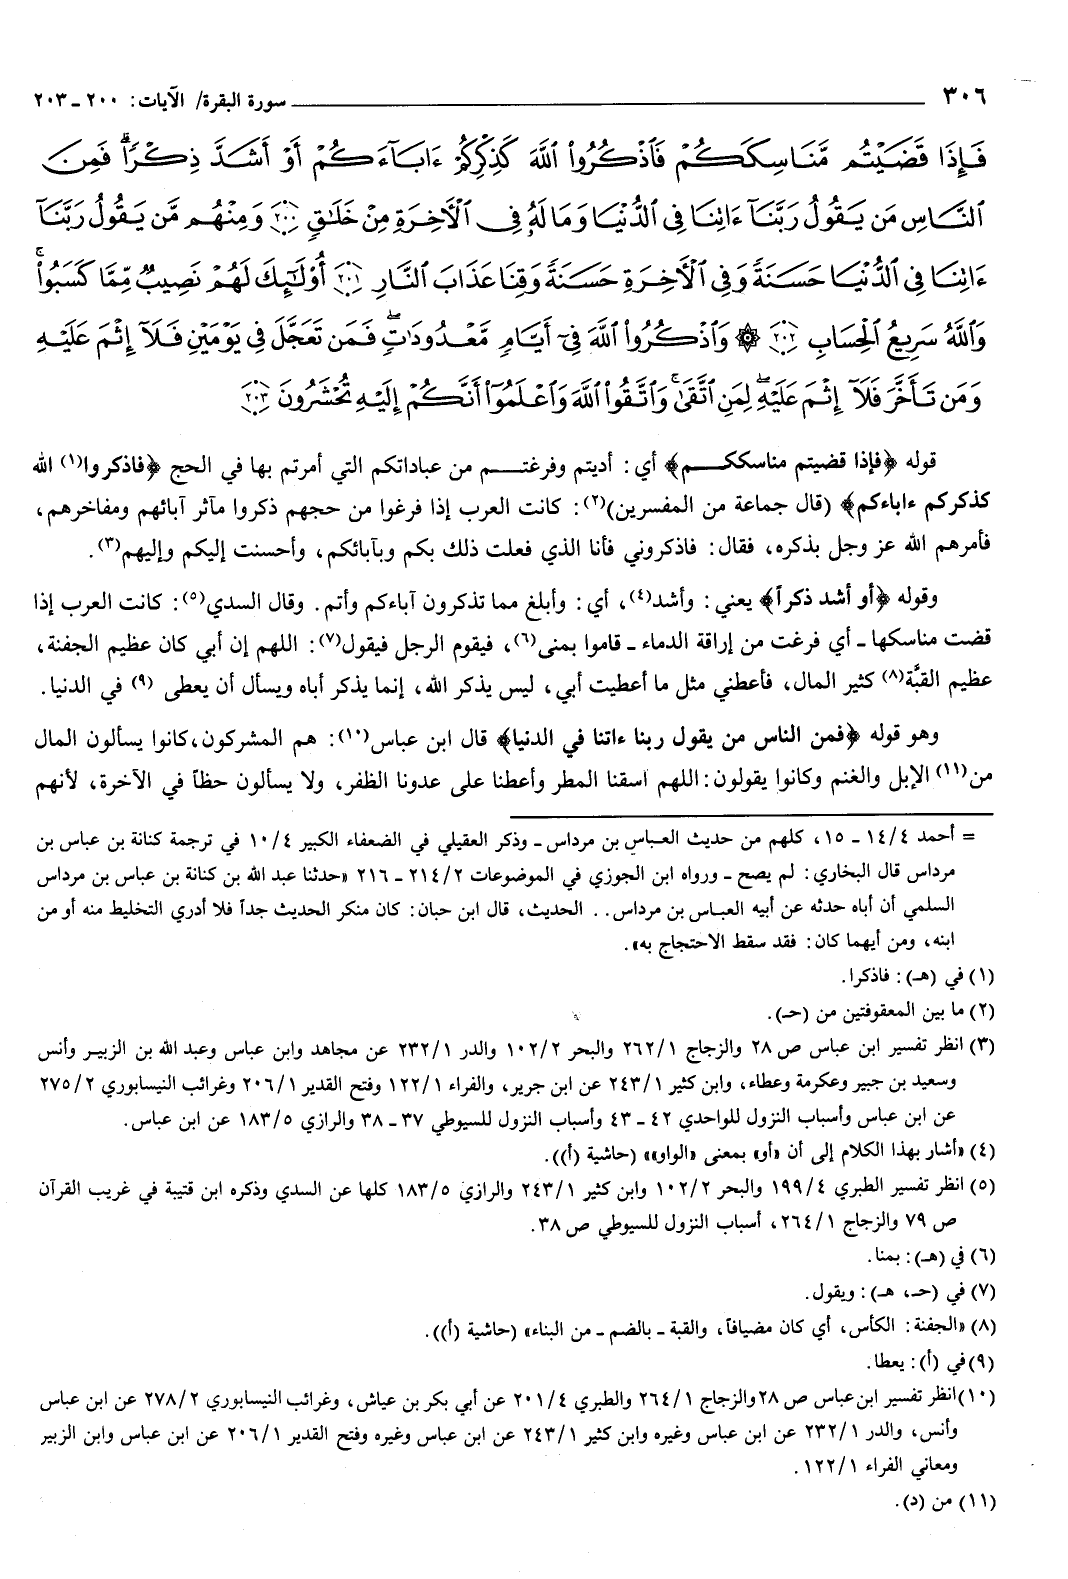 ٣٠٦ سورة البقرة/ الآيات: ٢٠٠ ـ ٢٠٣
فَإِذَا قَضَيْتُم مَّنَاسِكَكُمْ فَاذْكُرُوا اللَّهَ كَذِكْرِكُمْ ءَابَاءَكُمْ أَوْ أَشَدَّ ذِكْرًا فَمِنَ
النَّاسِ مَن يَقُولُ رَبَّنَا ءَاتِنَا فِي الدُّنْيَا وَمَا لَهُ فِي الْآخِرَةِ مِنْ خَلَاقٍ ٢٠٠ وَمِنْهُم مَّن يَقُولُ رَبَّنَا
ءَاتِنَا فِي الدُّنْيَا حَسَنَةً وَفِي الْآخِرَةِ حَسَنَةً وَقِنَا عَذَابَ النَّارِ ٢٠١ أُوْلَئِكَ لَهُمْ نَصِيبٌ مِّمَّا كَسَبُوا
وَاللَّهُ سَرِيعُ الْحِسَابِ ٢٠٢ ۞ وَاذْكُرُوا اللَّهَ فِي أَيَّامٍ مَّعْدُودَاتٍ فَمَن تَعَجَّلَ فِي يَوْمَيْنِ فَلَا إِثْمَ عَلَيْهِ
وَمَن تَأَخَّرَ فَلَا إِثْمَ عَلَيْهِ لِمَنِ اتَّقَى وَاتَّقُوا اللَّهَ وَاعْلَمُوا أَنَّكُمْ إِلَيْهِ تُحْشَرُونَ ٢٠٣
قوله ﴿فإذا قضيتم مناسككم﴾ أي: أديتم وفرغتم من عباداتكم التي أمرتم بها في الحج ﴿فاذكروا(١) الله
كذكركم ءاباءكم﴾ (قال جماعة من المفسرين)(٢): كانت العرب إذا فرغوا من حجهم ذكروا مآثر آبائهم ومفاخرهم،
فأمرهم الله عز وجل بذكره، فقال: فاذكروني فأنا الذي فعلت ذلك بكم وبآبائكم، وأحسنت إليكم وإليهم(٣).
وقوله ﴿أو أشد ذكراً﴾ يعني: وأشد(٤)، أي: وأبلغ مما تذكرون آباءكم وأتم. وقال السدي(٥): كانت العرب إذا
قضت مناسكها ـ أي فرغت من إراقة الدماء ـ قاموا بمنى(٦)، فيقوم الرجل فيقول(٧): اللهم إن أبي كان عظيم الجفنة،
عظيم القبَّة(٨) كثير المال، فأعطني مثل ما أعطيت أبي، ليس يذكر الله، إنما يذكر أباه ويسأل أن يعطى (٩) في الدنيا.
وهو قوله ﴿فمن الناس من يقول ربنا ءاتنا في الدنيا﴾ قال ابن عباس(١٠): هم المشركون، كانوا يسألون المال
من(١١) الإبل والغنم وكانوا يقولون: اللهم اسقنا المطر وأعطنا على عدونا الظفر، ولا يسألون حظاً في الآخرة، لأنهم
= أحمد ١٤/٤ ـ ١٥، كلهم من حديث العباس بن مرداس ـ وذكر العقيلي في الضعفاء الكبير ١٠/٤ في ترجمة كنانة بن عباس بن
مرداس قال البخاري: لم يصح ـ ورواه ابن الجوزي في الموضوعات ٢١٤/٢ ـ ٢١٦ «حدثنا عبد الله بن كنانة بن عباس بن مرداس
السلمي أن أباه حدثه عن أبيه العباس بن مرداس.. الحديث، قال ابن حبان: كان منكر الحديث جداً فلا أدري التخليط منه أو من
ابنه، ومن أيهما كان: فقد سقط الاحتجاج به».
(١) في (هـ): فاذكرا.
(٢) ما بين المعقوفتين من (حـ).
(٣) انظر تفسير ابن عباس ص ٢٨ والزجاج ٢٦٢/١ والبحر ١٠٢/٢ والدر ٢٣٢/١ عن مجاهد وابن عباس وعبد الله بن الزبير وأنس
وسعيد بن جبير وعكرمة وعطاء، وابن كثير ٢٤٣/١ عن ابن جرير، والفراء ١٢٢/١ وفتح القدير ٢٠٦/١ وغرائب النيسابوري ٢٧٥/٢
عن ابن عباس وأسباب النزول للواحدي ٤٢ ـ ٤٣ وأسباب النزول للسيوطي ٣٧ ـ ٣٨ والرازي ١٨٣/٥ عن ابن عباس.
(٤) «أشار بهذا الكلام إلى أن «أو» بمعنى «الواو»» (حاشية (أ)).
(٥) انظر تفسير الطبري ١٩٩/٤ والبحر ١٠٢/٢ وابن كثير ٢٤٣/١ والرازي ١٨٣/٥ كلها عن السدي وذكره ابن قتيبة في غريب القرآن
ص ٧٩ والزجاج ٢٦٤/١، أسباب النزول للسيوطي ص ٣٨.
(٦) في (هـ): بمنا.
(٧) في (حـ، هـ): ويقول.
(٨) «الجفنة: الكأس، أي كان مضيافاً، والقبة ـ بالضم ـ من البناء» (حاشية (أ)).
(٩) في (أ): يعطا.
(١٠) انظر تفسير ابن عباس ص ٢٨ والزجاج ٢٦٤/١ والطبري ٢٠١/٤ عن أبي بكر بن عياش، وغرائب النيسابوري ٢٧٨/٢ عن ابن عباس
وأنس، والدر ٢٣٢/١ عن ابن عباس وغيره وابن كثير ٢٤٣/١ عن ابن عباس وغيره وفتح القدير ٢٠٦/١ عن ابن عباس وابن الزبير
ومعاني الفراء ١٢٢/١.
(١١) من (د).